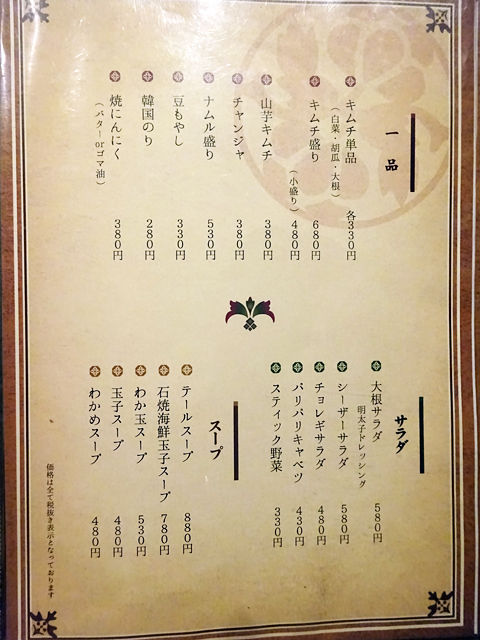 一品
キムチ単品 各330円
（白菜・胡瓜・大根）
キムチ盛り 680円
（小盛り）480円
山芋キムチ 380円
チャンジャ 380円
ナムル盛り 530円
豆もやし 330円
韓国のり 280円
焼にんにく 380円
（バターorゴマ油）
サラダ
大根サラダ 580円
明太子ドレッシング
シーザーサラダ 580円
チョレギサラダ 480円
パリパリキャベツ 430円
スティック野菜 330円
スープ
テールスープ 880円
石焼海鮮玉子スープ 780円
わか玉スープ 530円
玉子スープ 480円
わかめスープ 480円
価格は全て税抜き表示となっております